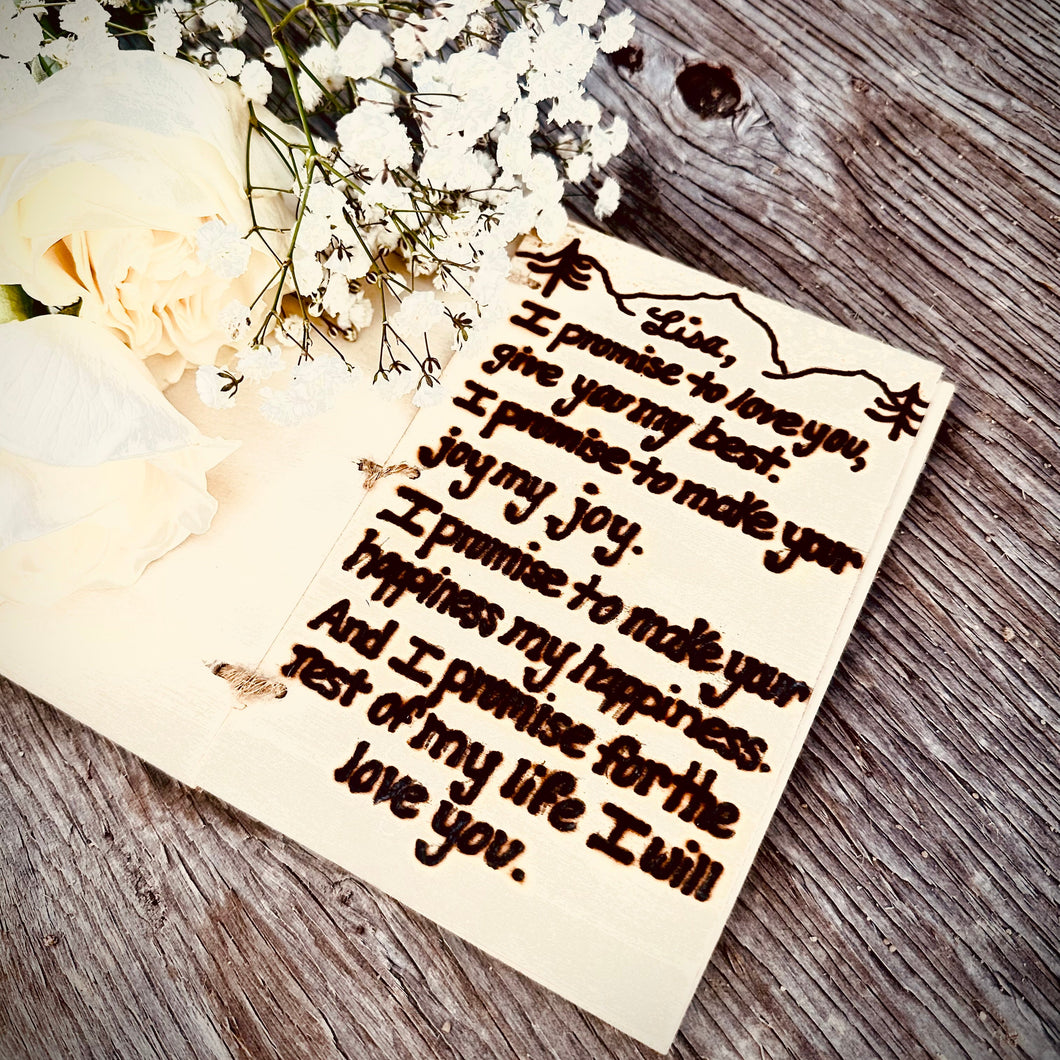 Lisa,
I promise to love you,
give you my best.
I promise to make your
joy my joy.
I promise to make your
happiness my happiness.
And I promise for the
rest of my life I will
love you.